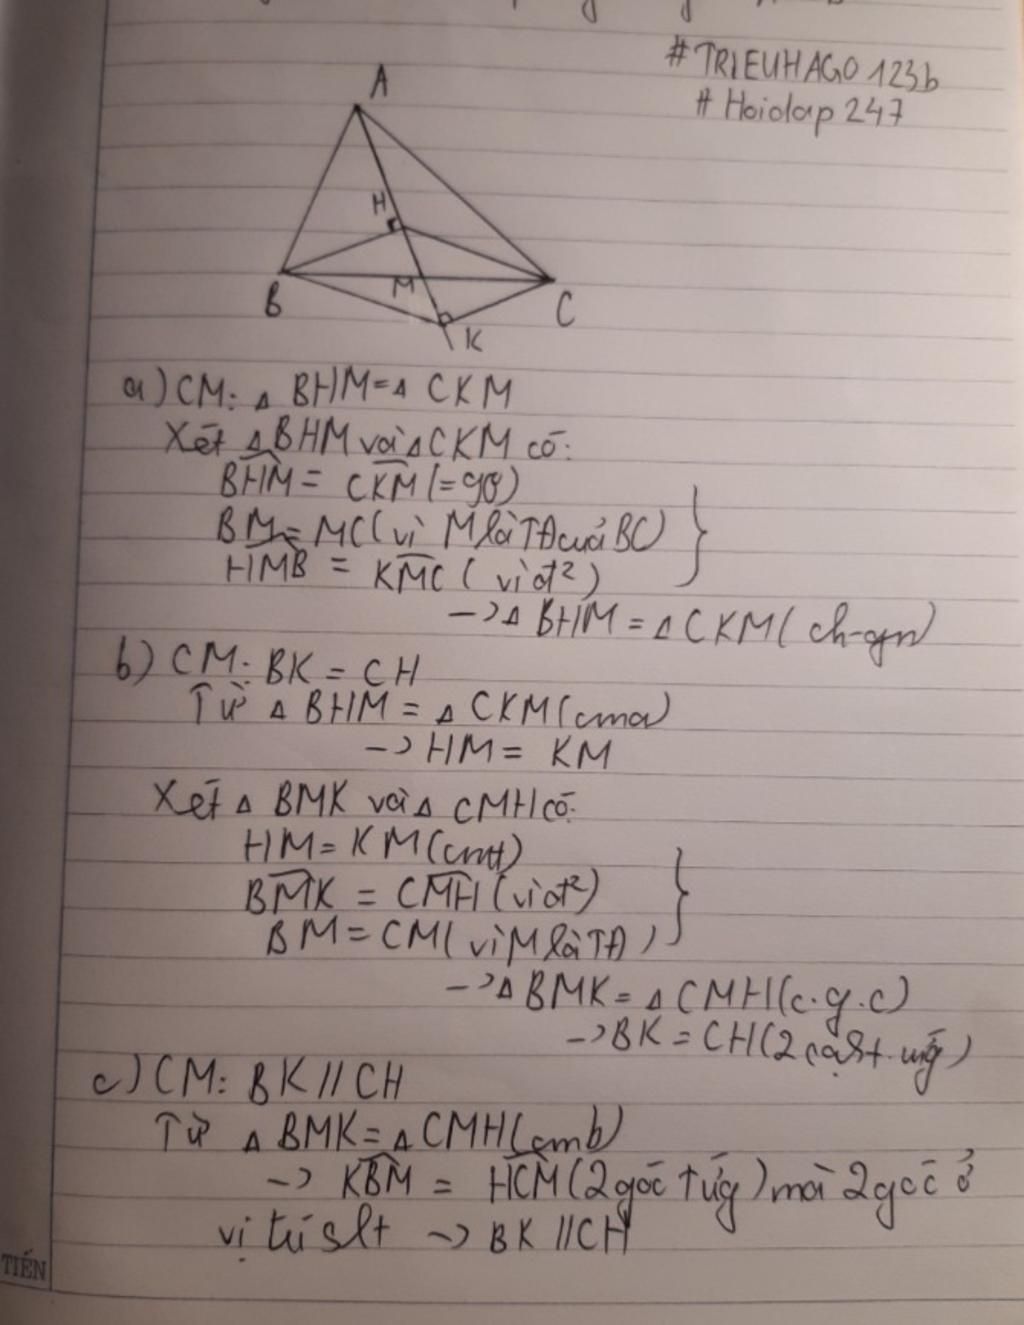 #TRIEUHAGO 123b
# Hoidap 247
A
H
B
M
C
K
a) CM: Δ BHM = Δ CKM
Xét Δ BHM và Δ CKM có:
BHM = CKM (= 90)
BM = MC (vì M là TĐ của BC)
HMB = KMC ( vì đ²)
-> Δ BHM = Δ CKM ( ch-gn)
b) CM: BK = CH
Từ Δ BHM = Δ CKM (cma)
-> HM = KM
Xét Δ BMK và Δ CMH có:
HM = KM (cmtt)
BMK = CMH (vì đ²)
BM = CM ( vì M là TĐ )
-> Δ BMK = Δ CMH (c.g.c)
-> BK = CH (2 cạh t.ứg)
c) CM: BK // CH
Từ Δ BMK = Δ CMH (cmb)
-> KBM = HCM (2 góc t ứg) mà 2 góc ở
vị trí slt -> BK // CH
TIẾN